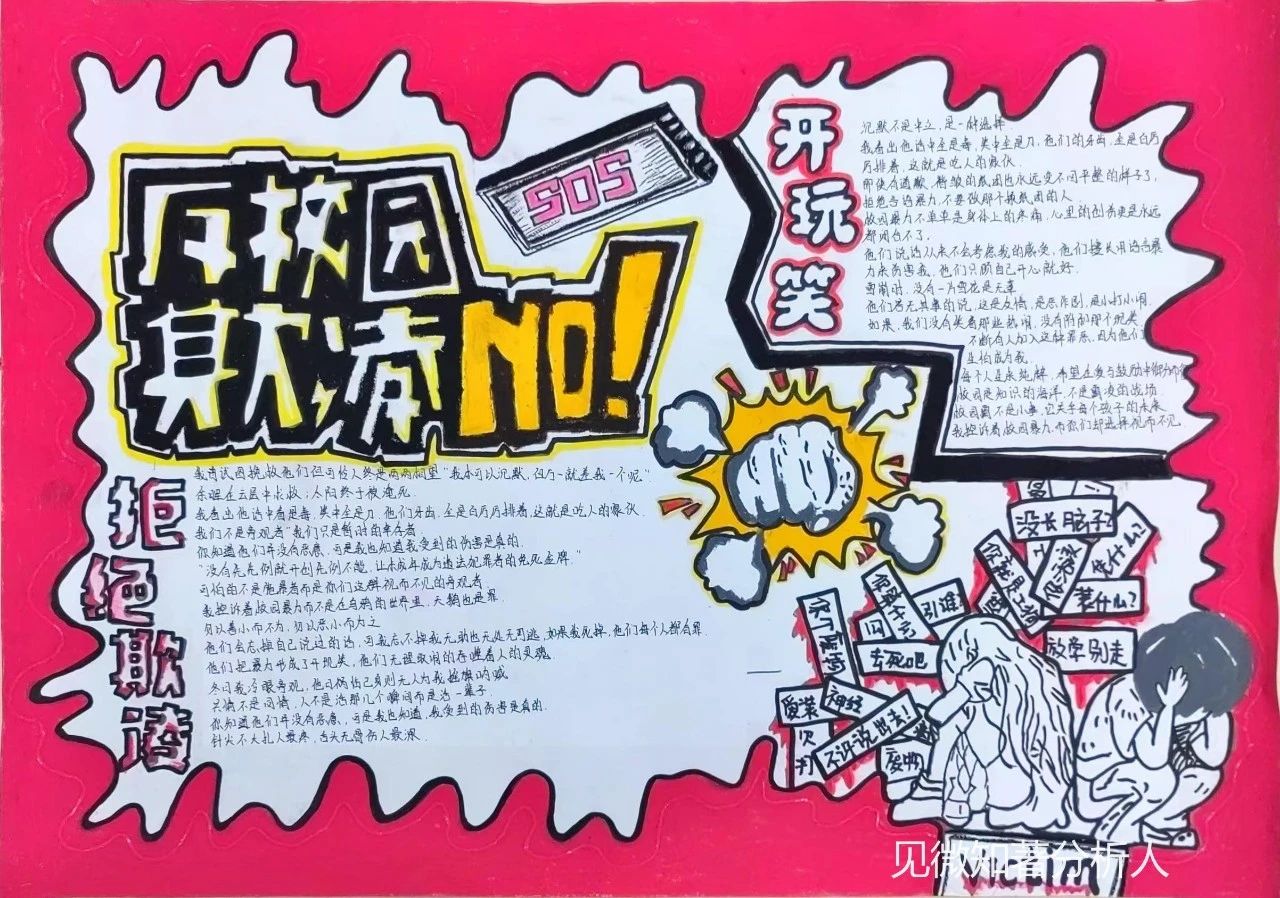 反校园
欺凌 NO!
SOS
开玩笑
沉默不是中立，是一种选择
我看出他话中全是毒，笑中全是刀，他们的牙齿，全是白厉
厉排着，这就是吃人的家伙．
即使有道歉，
拒绝言语暴力，不要做那个
校园暴力不单单是身体上的疼痛，心里的创伤更是永远
都闭合不了．
他们说话从来不会考虑我的感受，他们擅长用语言暴
力来伤害我，他们只顾自己开心就好．
雪崩时，没有一片雪花是无辜
他们若无其事的说，这是友情，是恶作剧，是小打小闹．
如果，我们没有笑着那些热闹，没有附和那个玩笑
不断有人加入这种罪恶，因为他们
生怕成为我．
每个人是
校园是知识的海洋，不是霸凌的战场
校园霸不是小事，它关乎每个孩子的未来
我控诉着校园暴力而你们却选择视而不见
拒绝欺凌
我曾试图挽救他们但可怜人终是两两相望“我本可以沉默，但万一就差我一个呢”
余晖在云层中长眠；太阳终于被淹死．
我看出他话中看是毒，笑中全是刀，他们牙齿，全是白厉厉排着，这就是吃人的家伙．
我们不是旁观者“我们只是暂时的幸存者
你知道他们并没有恶意，可是我也知道我受到的伤害是真的．
“没有先先例就开创先例不能，让未成年成为违法犯罪者的免死金牌．”
可怕的不是施暴者而是你们这群视而不见的旁观者
我控诉着校园暴力而不是在乌鸦的世界里，天鹅也是罪．
勿以善小而不为，勿以恶小而为之
他们会忘掉自己说过的话，可我忘不掉我无助也无处无可逃，如果我死掉，他们每个人都有罪．
他们把暴力形成了开玩笑，他们无理取闹的吞噬着人的灵魂．
冬日我冷眼旁观，他日祸临己身则无人为我摇旗呐喊
共情不是同情，人不是活那几个瞬间而是活一辈子．
你知道他们并没有恶意，可是我也知道，我受到的伤害是真的．
针尖不大扎人最疼，舌头无骨伤人最深．
没长脑子？
凭什么？
装什么？
放学别走
引诽
去死吧
爱装
神经
不许说出去！
废物
见微知著分析人